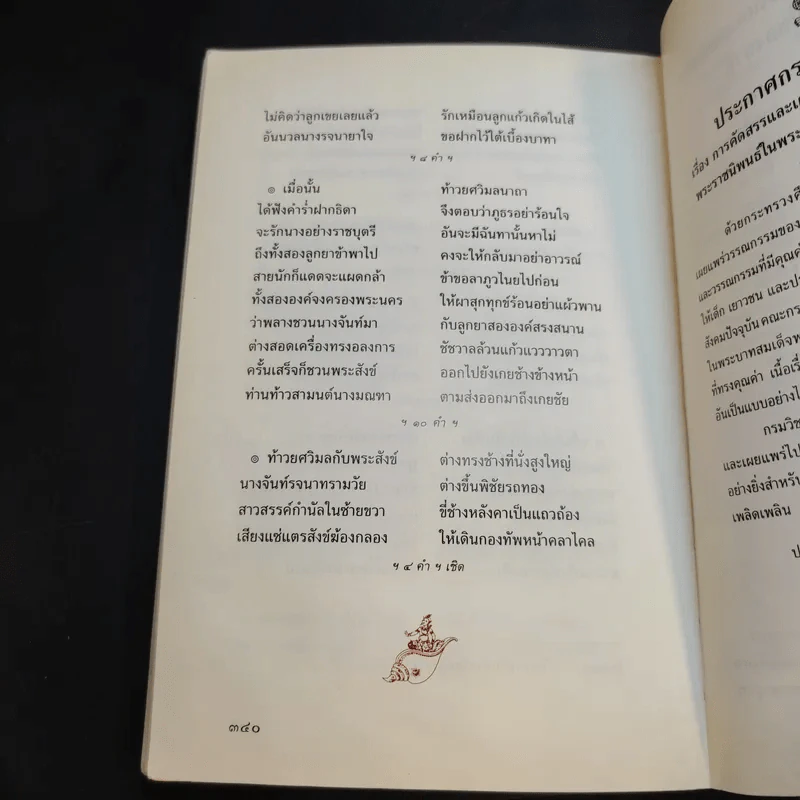 ไม่คิดว่าลูกเขยเลยแล้ว รักเหมือนลูกแก้วเกิดในไส้
อันนวลนางรจนายาใจ ขอฝากไว้ใต้เบื้องบาทา
ฯ ๘ คำ ฯ
๏ เมื่อนั้น ท้าวยศวิมลนาถา
ได้ฟังคำร่ำฝากธิดา จึงตอบว่าภูธรอย่าร้อนใจ
จะรักนางอย่างราชบุตรี อันจะมีฉันทานั้นหาไม่
ถึงทั้งสองลูกยาข้าพาไป คงจะให้กลับมาอย่าอาวรณ์
สายนักก็แดดจะแผดกล้า ข้าขอลาภูวไนยไปก่อน
ทั้งสององค์จงครองพระนคร ให้ผาสุกทุกข์ร้อนอย่าแผ้วพาน
ว่าพลางชวนนางจันท์มา กับลูกยาสององค์สรงสนาน
ต่างสอดเครื่องทรงอลงการ ชัชวาลล้วนแก้วแวววาวตา
ครั้นเสร็จก็ชวนพระสังข์ ออกไปยังเกยช้างข้างหน้า
ท่านท้าวสามนต์นางมณฑา ตามส่งออกมาถึงเกยชัย
ฯ ๑๐ คำ ฯ
๏ ท้าวยศวิมลกับพระสังข์ ต่างทรงช้างที่นั่งสูงใหญ่
นางจันท์รจนาทรามวัย ต่างขึ้นพิชัยรถทอง
สาวสรรค์กำนัลในซ้ายขวา ขี่ช้างหลังคาเป็นแถวถ้อง
เสียงแซ่แตรสังข์ฆ้องกลอง ให้เดินกองทัพหน้าคลาไคล
ฯ ๔ คำ ฯ เชิด
๓๔๐
ประกาศกร
เรื่อง การคัดสรรและเผ
พระราชนิพนธ์ในพระ
ด้วยกระทรวงศึ
เผยแพร่วรรณกรรมของ
และวรรณกรรมที่มีคุณค่
ให้เด็ก เยาวชน และปร
สังคมปัจจุบัน คณะกร
ในพระบาทสมเด็จพ
ที่ทรงคุณค่า เนื้อเรื่
อันเป็นแบบอย่างไ
กรมวิช
และเผยแพร่ไป
อย่างยิ่งสำหรับ
เพลิดเพลิน
ป